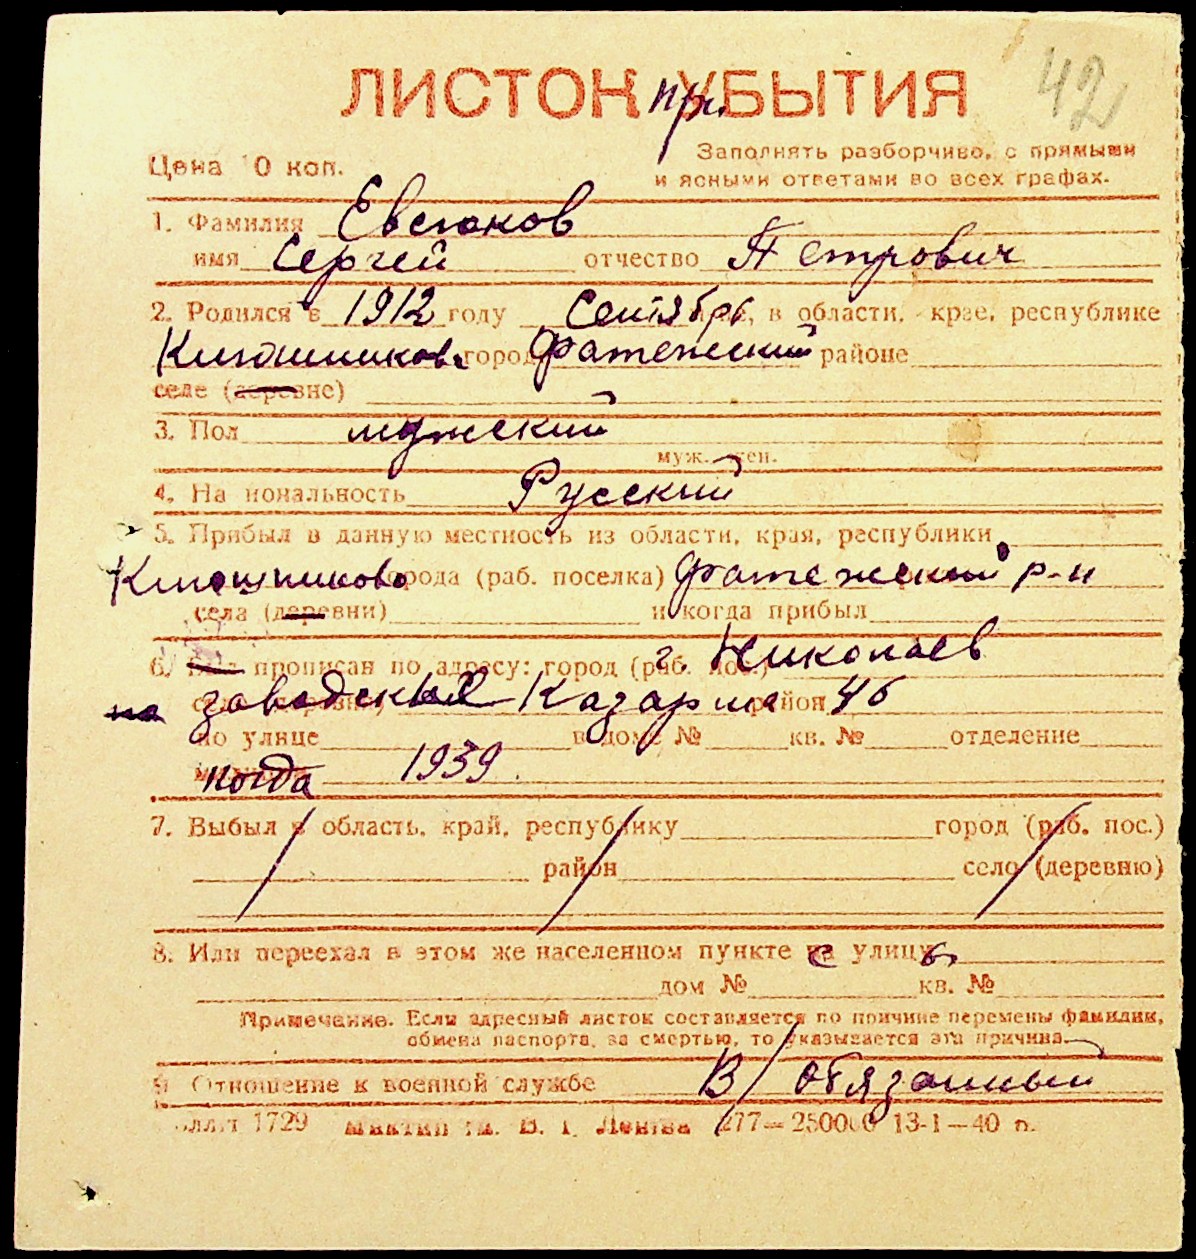 42
ЛИСТОК пр. УБЫТИЯ
Цена 10 коп.
Заполнять разборчиво, с прямыми
и ясными ответами во всех графах.
1. Фамилия
имя Сергей отчество Петрович
2. Родился в 1912 году Сентябрь, в области, крае, республике
город Фатежский районе
селе (деревне)
3. Пол мужской
муж. жен.
4. Национальность Русский
5. Прибыл в данную местность из области, края, республики
города (раб. поселка) Фатежский р-н
села (деревни) и когда прибыл
6. Был прописан по адресу: город (раб. пос.) г. Николаев
на заводский Казарма район 46
по улице в доме № кв. № отделение
когда 1939
7. Выбыл в область, край, республику город (раб. пос.)
район село (деревню)
8. Или переехал в этом же населенном пункте с улицы
дом № кв. №
Примечание. Если адресный листок составляется по причине перемены фамилии,
обмена паспорта, за смертью, то указывается эта причина.
9. Отношение к военной службе В/обязанный
1729 им. В. И. Ленина 277—250000 13-1—40 г.